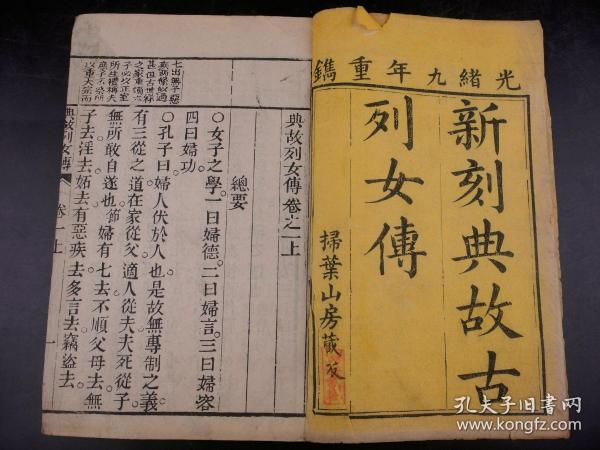 光緒九年重鐫
新刻典故古
列女傳
掃葉山房藏板
典故列女傳卷之一上
總要
○女子之學。一曰婦德。二曰婦言。三曰婦容
四曰婦功。
○孔子曰。婦人伏於人也。是故無專制之義
有三從之道。在家從父。適人從夫。夫死從子
無所敢自遂也。節婦有七去。不順父母去。無
子去。淫去。妬去。有惡疾去。多言去。竊盜去。
七出無子惡
典故列女傳
卷一上
一
孔夫子旧书网
www.kongfz.com